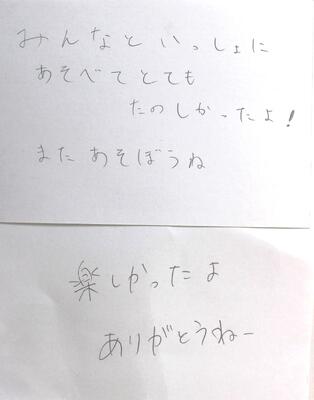 みんなといっしょに
あそべてとても
たのしかったよ!
またあそぼうね
楽しかったよ
ありがとうねー